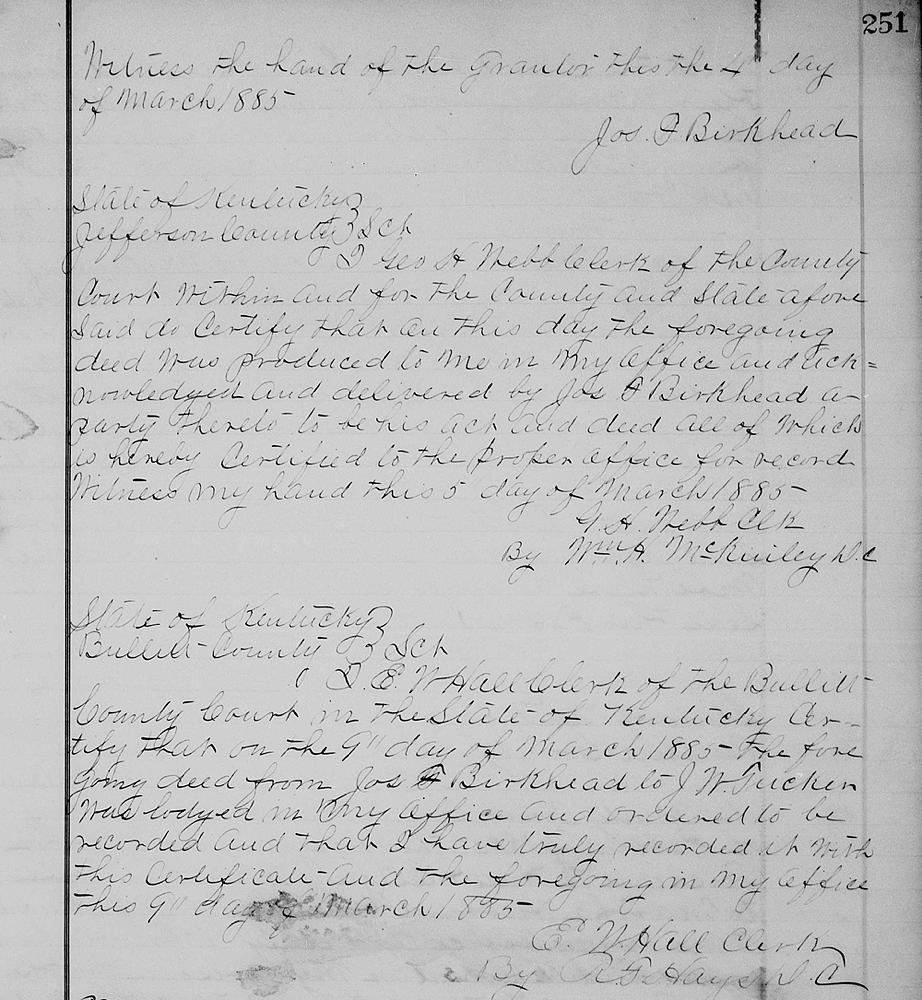 251
Witness the hand of the Grantor this the 4" day
of March 1885
Jos. F Birkhead
State of Kentucky }
Jefferson County } Sct
I Geo H Webb Clerk of the County
Court Within and for the County and State afore
Said do Certify that on this day the foregoing
deed Was produced to Me in My office and ack=
nowledged and delivered by Jos F Birkhead a
party thereto to be his act and deed all of Which
is hereby Certified to the proper office for record
Witness my hand this 5" day of March 1885
G. H. Webb Clk
By Wm. A. McKinley D.C
State of Kentucky }
Bullitt County } Sct
I. E. W Hall Clerk of the Bullitt
County Court in the State of Kentucky Cer-
tify that on the 9" day of March 1885 the fore
going deed from Jos F Birkhead to J W. Tucker
Was lodged in my office and ordered to be
recorded and that I have truly recorded it With
this Certificate and the foregoing in My office
this 9" day of March 1885
E. W. Hall Clerk
By R F Hays D. C